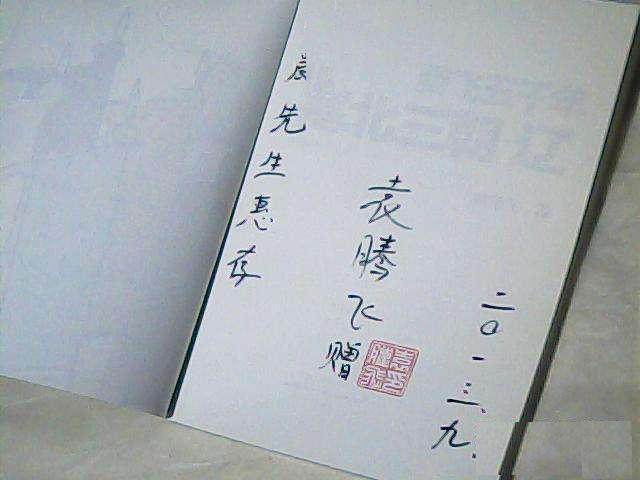 先生惠存
袁腾飞赠
二〇一三.九.